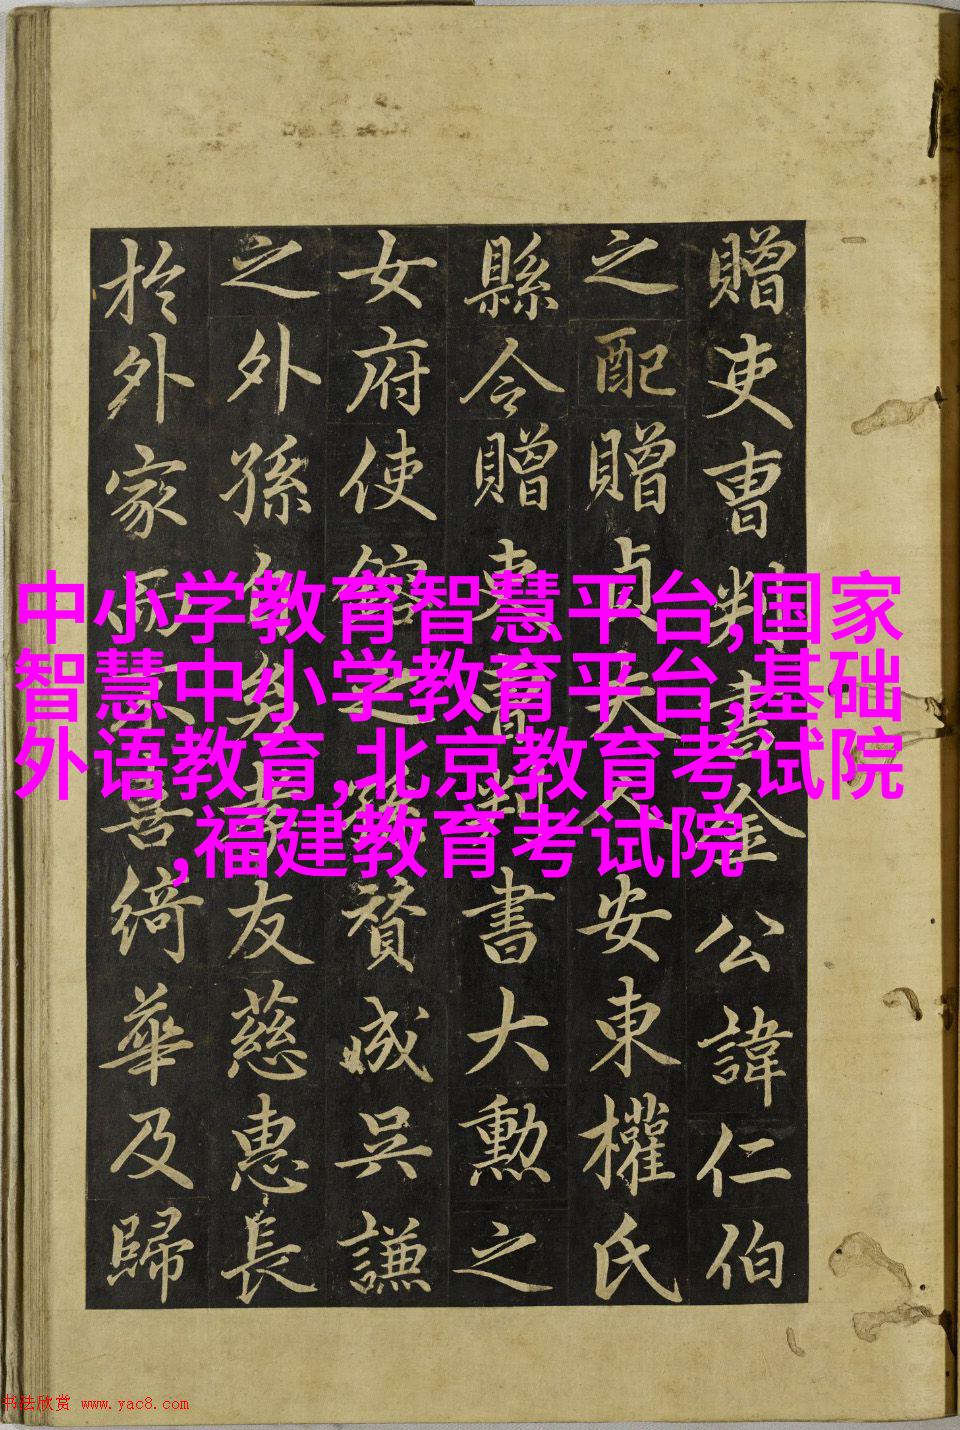 贈吏曺判書金公諱仁伯
之配贈貞夫人安東權氏
縣令贈吏曺判書大勳之
女府使綰之孫贊成吳謙
之外孫自幼孝友慈惠長
於外家而不喜綺華及歸
中小学教育智慧平台,国家
智慧中小学教育平台,基础
外语教育,北京教育考试院
,福建教育考试院
书法欣赏 www.yac8.com